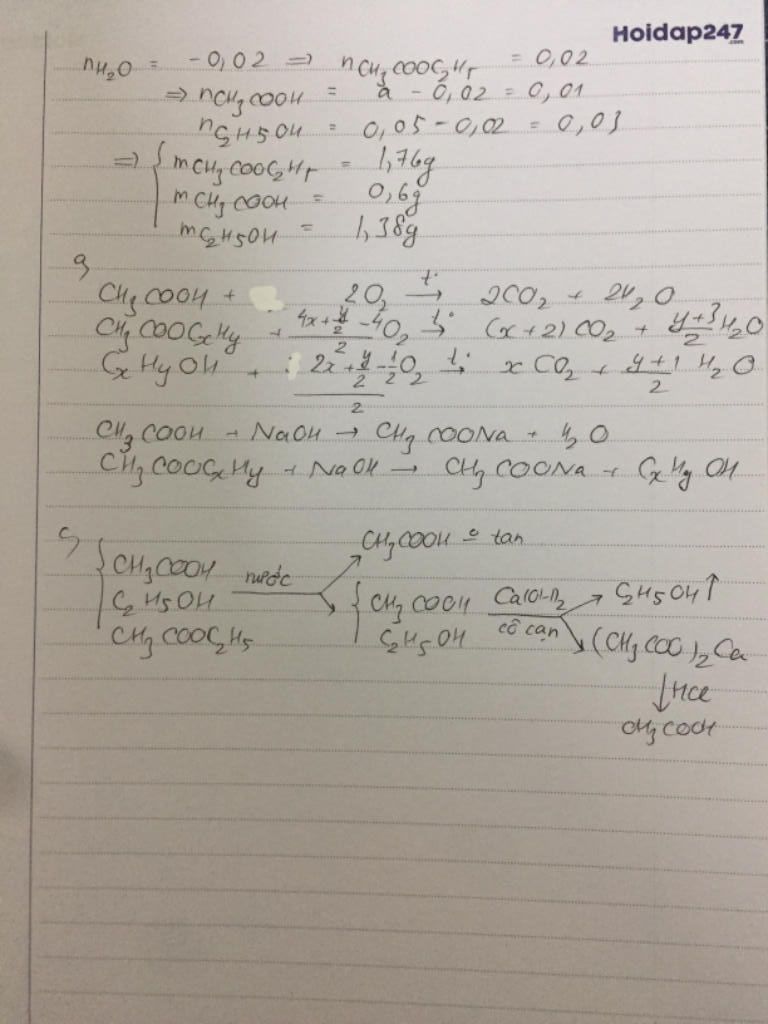 Hoidap247
.com
nH2O = -0,02 => nCH3COOC2H5 = 0,02
=> nCH3COOH = a - 0,02 = 0,01
nC2H5OH = 0,05 - 0,02 = 0,03
=> { mCH3COOC2H5 = 1,76g
mCH3COOH = 0,6g
mC2H5OH = 1,38g
CH3COOH + 2O2 t°→ 2CO2 + 2H2O
CH3COOCxHy + (4x + y/2 - 4)/2 O2 t°→ (x+2)CO2 + (y+3)/2 H2O
CxHyOH + (2x + y/2 - 1/2)/2 O2 t°→ xCO2 + (y+1)/2 H2O
CH3COOH + NaOH → CH3COONa + H2O
CH3COOCxHy + NaOH → CH3COONa + CxHyOH
c) { CH3COOH C2H5OH CH3COOC2H5 nước →
CH3COOH tan
{ CH3COOH C2H5OH Ca(OH)2 cô cạn →
C2H5OH ↑
(CH3COO)2Ca
↓ HCl
CH3COOH